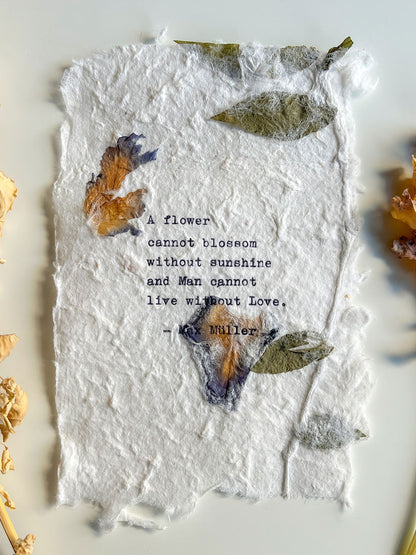 A flower
cannot blossom
without sunshine
and Man cannot
live without Love.
- Max Müller -